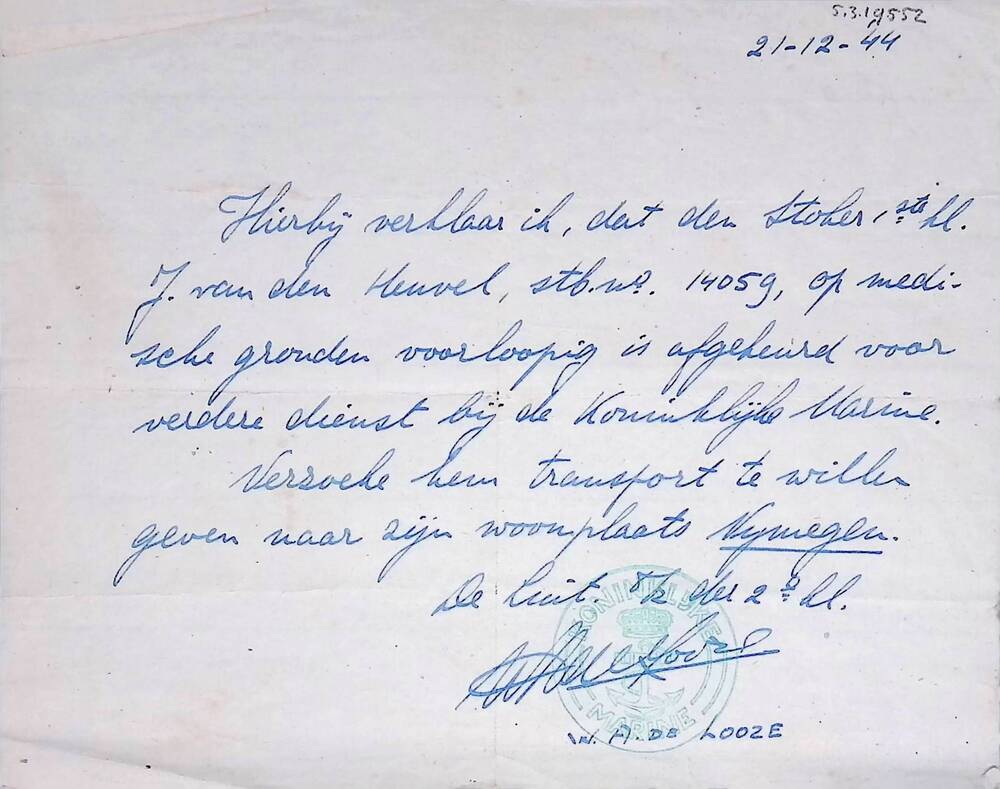 5.3.19552
21-12-'44
Hierbij verklaar ik, dat den Stoker, ste kl.
J. van den Heuvel, stb. no. 14059, op medi-
sche gronden voorloopig is afgekeurd voor
verdere dienst bij de Koninklijke Marine.
Verzoeke hem transport te willen
geven naar zijn woonplaats Nymegen.
De Luit. t/z der 2e kl.
KONINKLIJKE
MARINE
W. A. DE LOOZE